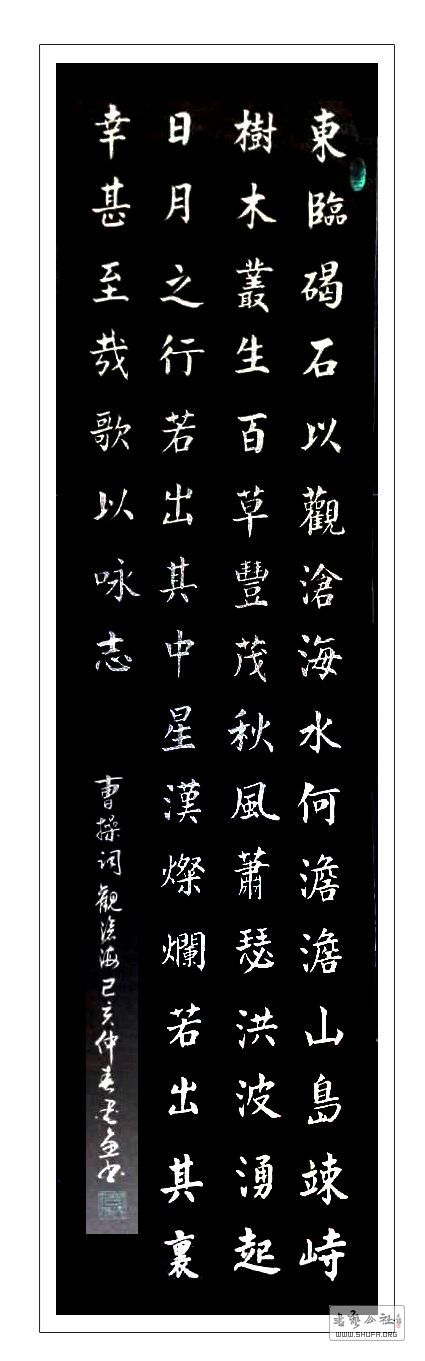 東臨碣石以觀滄海水何澹澹山島竦峙
樹木叢生百草豐茂秋風蕭瑟洪波湧起
日月之行若出其中星漢燦爛若出其裏
幸甚至哉歌以咏志
曹操词觀滄海己亥仲春
WWW.SHUFA.ORG